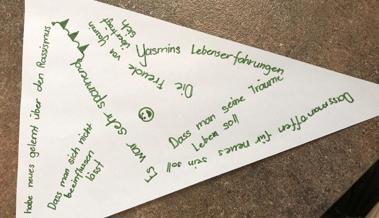 Yasmins Lebenserfahrungen
Die Freude
von Yasmin
sich
Es war sehr spannend
Dass man seine Träume
Leben soll
Dass man offen für neues sein soll
Dass man sich nicht
beeinflussen
lässt
habe neues gelernt über den Rassismus